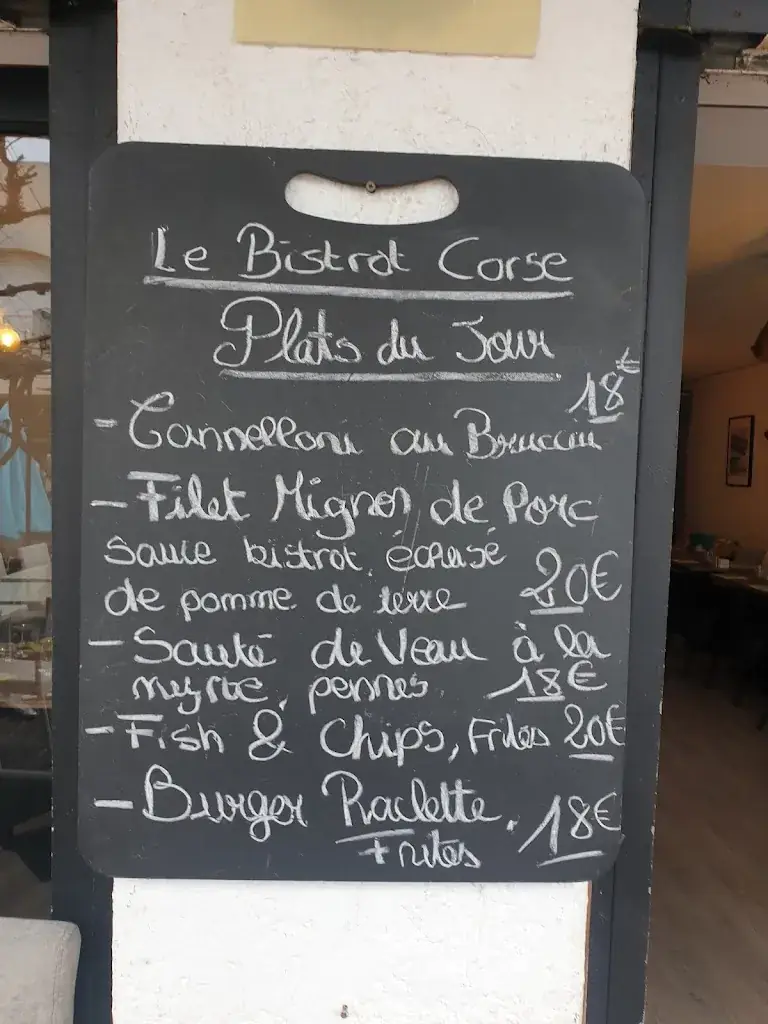 Le Bistrot Corse
Plats du Jour
18€
- Cannelloni au Brucciu
- Filet Mignon de Porc
sauce bistrot, écrasé
de pomme de terre 20€
- Sauté de Veau à la
myrte, pennes, 18€
- Fish & Chips, Frites 20€
- Burger Raclette, 18€
Frites